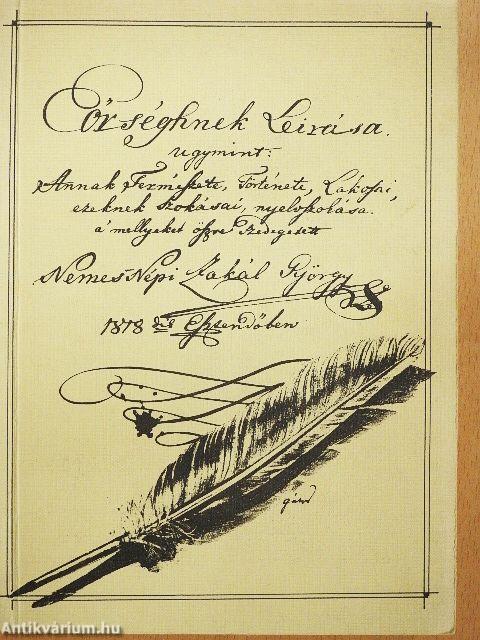 Eőrséghnek Leirása.
ugymint:
Annak Természete, Története, Lakosai,
ezeknek szokásai, nyelvszolása.
a' mellyeket öszve szedegetett
Nemes Népi Zakál György
1818 dik Esztendőben
Antikvárium.hu